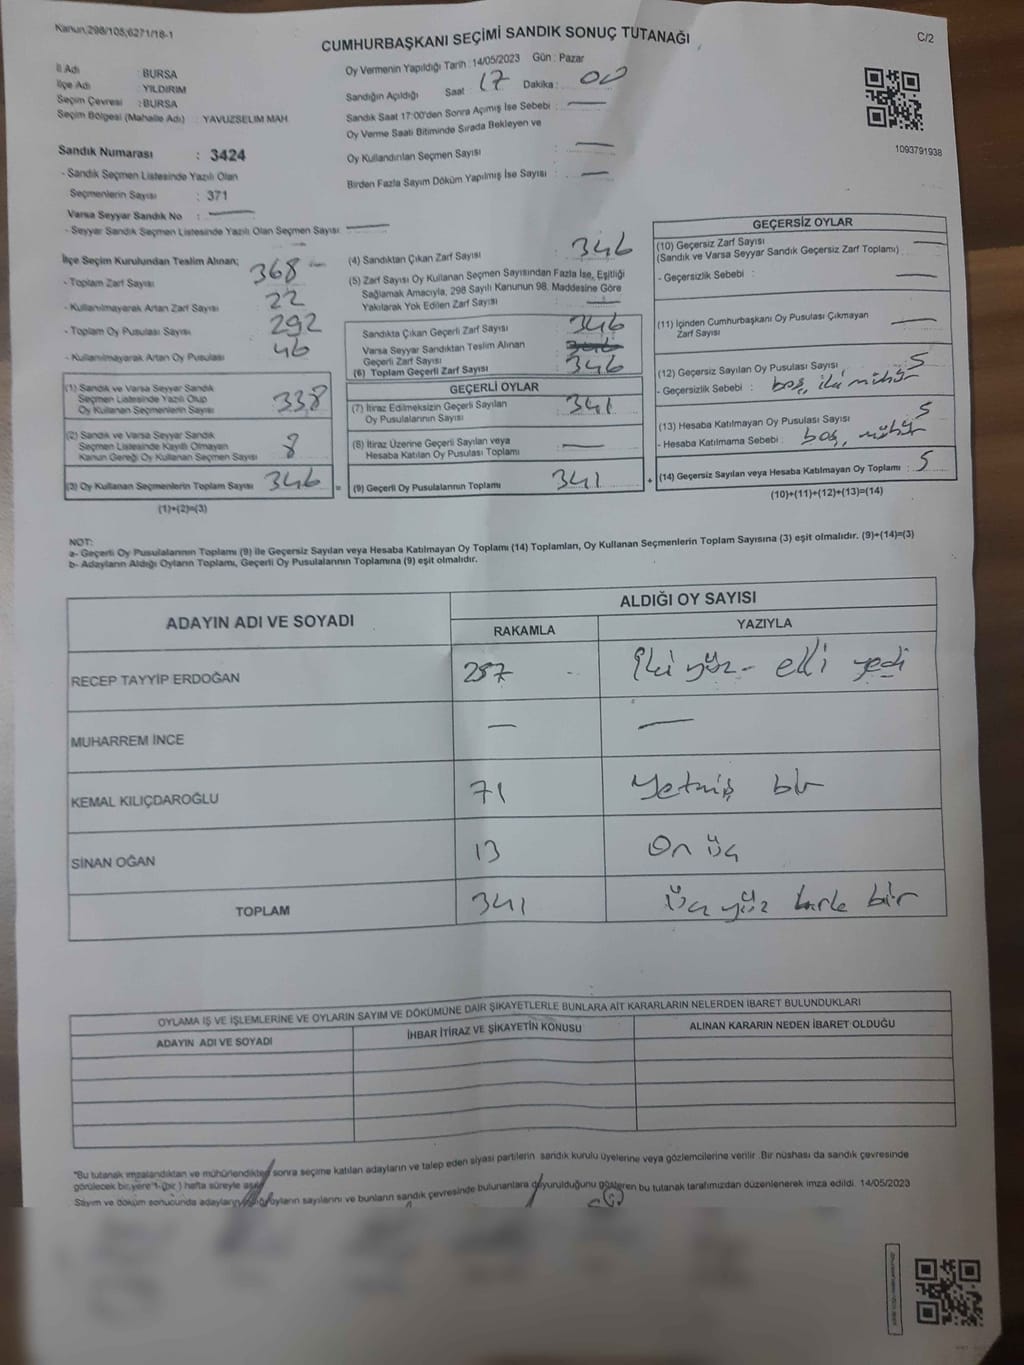 Kanun;298/105;6271/18-1
CUMHURBAŞKANI SEÇİMİ SANDIK SONUÇ TUTANAĞI
C/2
İl Adı : BURSA
İlçe Adı : YILDIRIM
Seçim Çevresi : BURSA
Seçim Bölgesi (Mahalle Adı) : YAVUZSELIM MAH
Sandık Numarası : 3424
- Sandık Seçmen Listesinde Yazılı Olan
Seçmenlerin Sayısı : 371
Varsa Seyyar Sandık No : —
- Seyyar Sandık Seçmen Listesinde Yazılı Olan Seçmen Sayısı —
Oy Vermenin Yapıldığı Tarih : 14/05/2023 Gün : Pazar
Sandığın Açıldığı Saat 17 Dakika : 00
Sandık Saat 17:00'den Sonra Açımış İse Sebebi : —
Oy Verme Saati Bitiminde Sırada Bekleyen ve
Oy Kullandırılan Seçmen Sayısı : —
Birden Fazla Sayım Döküm Yapılmış İse Sayısı : —
1093791938
İlçe Seçim Kurulundan Teslim Alınan;
- Toplam Zarf Sayısı 368 —
- Kullanılmayarak Artan Zarf Sayısı 22
- Toplam Oy Pusulası Sayısı 292
- Kullanılmayarak Artan Oy Pusulası 46
(1) Sandık ve Varsa Seyyar Sandık
Seçmen Listesinde Yazılı Olup
Oy Kullanan Seçmenlerin Sayısı 338
(2) Sandık ve Varsa Seyyar Sandık
Seçmen Listesinde Kayıtlı Olmayan
Kanun Gereği Oy Kullanan Seçmen Sayısı 8
(3) Oy Kullanan Seçmenlerin Toplam Sayısı 346 =
(1)+(2)=(3)
(4) Sandıktan Çıkan Zarf Sayısı 346
(5) Zarf Sayısı Oy Kullanan Seçmen Sayısından Fazla İse, Eşitliği
Sağlamak Amacıyla, 298 Sayılı Kanunun 98. Maddesine Göre
Yakılarak Yok Edilen Zarf Sayısı : —
Sandıkta Çıkan Geçerli Zarf Sayısı 346
Varsa Seyyar Sandıktan Teslim Alınan
Geçerli Zarf Sayısı
(6) Toplam Geçerli Zarf Sayısı 346
GEÇERLİ OYLAR
(7) İtiraz Edilmeksizin Geçerli Sayılan
Oy Pusulalarının Sayısı 341
(8) İtiraz Üzerine Geçerli Sayılan veya
Hesaba Katılan Oy Pusulası Toplamı —
(9) Geçerli Oy Pusulalarının Toplamı 341 +
GEÇERSİZ OYLAR
(10) Geçersiz Zarf Sayısı —
(Sandık ve Varsa Seyyar Sandık Geçersiz Zarf Toplamı)
- Geçersizlik Sebebi : —
(11) İçinden Cumhurbaşkanı Oy Pusulası Çıkmayan
Zarf Sayısı —
(12) Geçersiz Sayılan Oy Pusulası Sayısı 5
- Geçersizlik Sebebi : boş, iki mühür
(13) Hesaba Katılmayan Oy Pusulası Sayısı 5
- Hesaba Katılmama Sebebi : boş, mühür
(14) Geçersiz Sayılan veya Hesaba Katılmayan Oy Toplamı : 5
(10)+(11)+(12)+(13)=(14)
NOT:
a- Geçerli Oy Pusulalarının Toplamı (9) ile Geçersiz Sayılan veya Hesaba Katılmayan Oy Toplamı (14) Toplamları, Oy Kullanan Seçmenlerin Toplam Sayısına (3) eşit olmalıdır. (9)+(14)=(3)
b- Adayların Aldığı Oyların Toplamı, Geçerli Oy Pusulalarının Toplamına (9) eşit olmalıdır.
ADAYIN ADI VE SOYADI
ALDIĞI OY SAYISI
RAKAMLA YAZIYLA
RECEP TAYYİP ERDOĞAN 257 iki yüz - elli yedi
MUHARREM İNCE — —
KEMAL KILIÇDAROĞLU 71 Yetmiş bir
SİNAN OĞAN 13 On üç
TOPLAM 341 üç yüz kırk bir
OYLAMA İŞ VE İŞLEMLERİNE VE OYLARIN SAYIM VE DÖKÜMÜNE DAİR ŞİKAYETLERLE BUNLARA AİT KARARLARIN NELERDEN İBARET BULUNDUKLARI
ADAYIN ADI VE SOYADI İHBAR İTİRAZ VE ŞİKAYETİN KONUSU ALINAN KARARIN NEDEN İBARET OLDUĞU
"Bu tutanak imzalandıktan ve mühürlendikten sonra seçime katılan adayların ve talep eden siyasi partilerin sandık kurulu üyelerine veya gözlemcilerine verilir. Bir nüshası da sandık çevresinde
görülecek bir yere 1 (bir) hafta süreyle asılır.
Sayım ve döküm sonucunda adayların aldığı oyların sayılarını ve bunların sandık çevresinde bulunanlara duyurulduğunu gösteren bu tutanak tarafımızdan düzenlenerek imza edildi. 14/05/2023